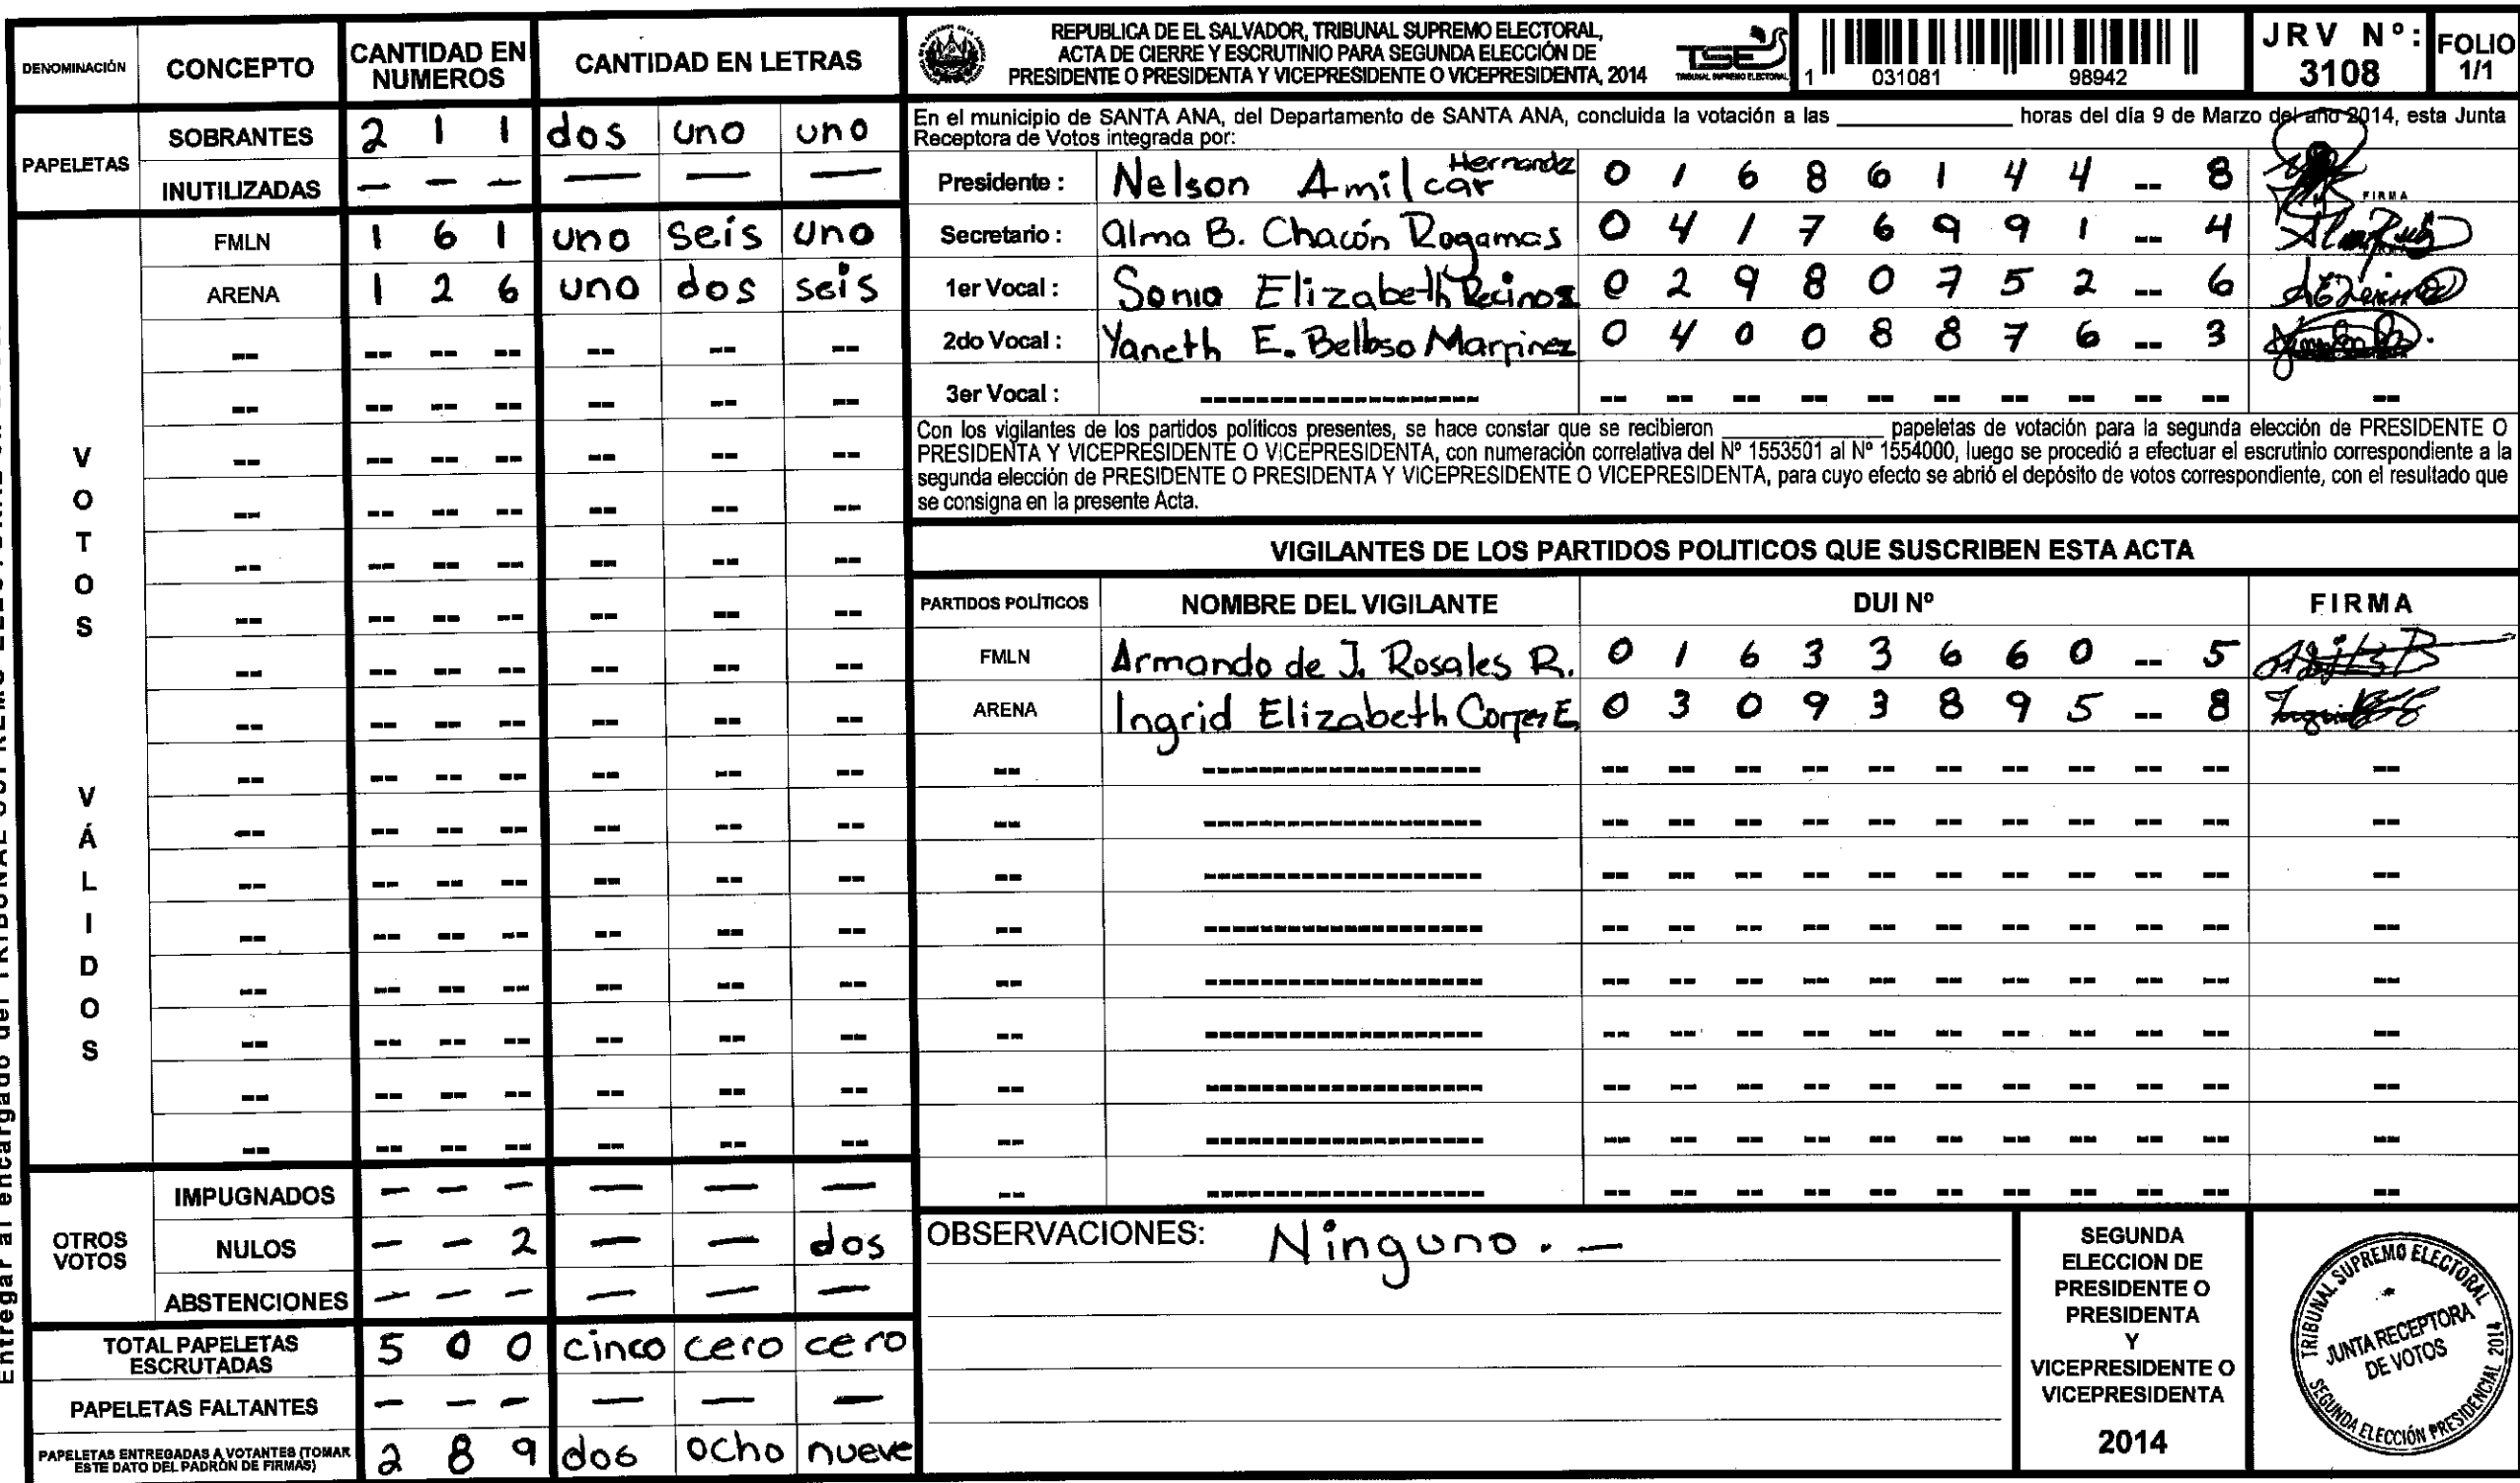 DENOMINACIÓN CONCEPTO CANTIDAD EN NUMEROS CANTIDAD EN LETRAS
PAPELETAS
SOBRANTES 2 1 1 dos uno uno
INUTILIZADAS — — — — — —
VOTOS VÁLIDOS
FMLN 1 6 1 uno seis uno
ARENA 1 2 6 uno dos seis
OTROS VOTOS
IMPUGNADOS — — — — — —
NULOS — — 2 — — dos
ABSTENCIONES — — — — — —
TOTAL PAPELETAS ESCRUTADAS 5 0 0 cinco cero cero
PAPELETAS FALTANTES — — — — — —
PAPELETAS ENTREGADAS A VOTANTES (TOMAR ESTE DATO DEL PADRÓN DE FIRMAS) 2 8 9 dos ocho nueve
REPUBLICA DE EL SALVADOR, TRIBUNAL SUPREMO ELECTORAL,
ACTA DE CIERRE Y ESCRUTINIO PARA SEGUNDA ELECCIÓN DE
PRESIDENTE O PRESIDENTA Y VICEPRESIDENTE O VICEPRESIDENTA, 2014
TSE
TRIBUNAL SUPREMO ELECTORAL
1 031081 98942
JRV Nº: 3108
FOLIO 1/1
En el municipio de SANTA ANA, del Departamento de SANTA ANA, concluida la votación a las ________ horas del día 9 de Marzo del año 2014, esta Junta
Receptora de Votos integrada por:
Presidente : Nelson Amilcar Hernandez 0 1 6 8 6 1 4 4 -- 8
FIRMA
Secretario : Alma B. Chacón Rogamas 0 4 1 7 6 9 9 1 -- 4
1er Vocal : Sonia Elizabeth Recinos 0 2 9 8 0 7 5 2 -- 6
2do Vocal : Yaneth E. Belloso Marrinez 0 4 0 0 8 8 7 6 -- 3
3er Vocal :
Con los vigilantes de los partidos políticos presentes, se hace constar que se recibieron ________ papeletas de votación para la segunda elección de PRESIDENTE O
PRESIDENTA Y VICEPRESIDENTE O VICEPRESIDENTA, con numeración correlativa del Nº 1553501 al Nº 1554000, luego se procedió a efectuar el escrutinio correspondiente a la
segunda elección de PRESIDENTE O PRESIDENTA Y VICEPRESIDENTE O VICEPRESIDENTA, para cuyo efecto se abrió el depósito de votos correspondiente, con el resultado que
se consigna en la presente Acta.
VIGILANTES DE LOS PARTIDOS POLITICOS QUE SUSCRIBEN ESTA ACTA
PARTIDOS POLÍTICOS NOMBRE DEL VIGILANTE DUI Nº FIRMA
FMLN Armando de J. Rosales R. 0 1 6 3 3 6 6 0 -- 5
ARENA Ingrid Elizabeth Cortez E. 0 3 0 9 3 8 9 5 -- 8
OBSERVACIONES: Ninguno. —
SEGUNDA
ELECCION DE
PRESIDENTE O
PRESIDENTA
Y
VICEPRESIDENTE O
VICEPRESIDENTA
2014
TRIBUNAL SUPREMO ELECTORAL
JUNTA RECEPTORA
DE VOTOS
SEGUNDA ELECCIÓN PRESIDENCIAL 2014
Entregar al encargado del TRIBUNAL SUPREMO